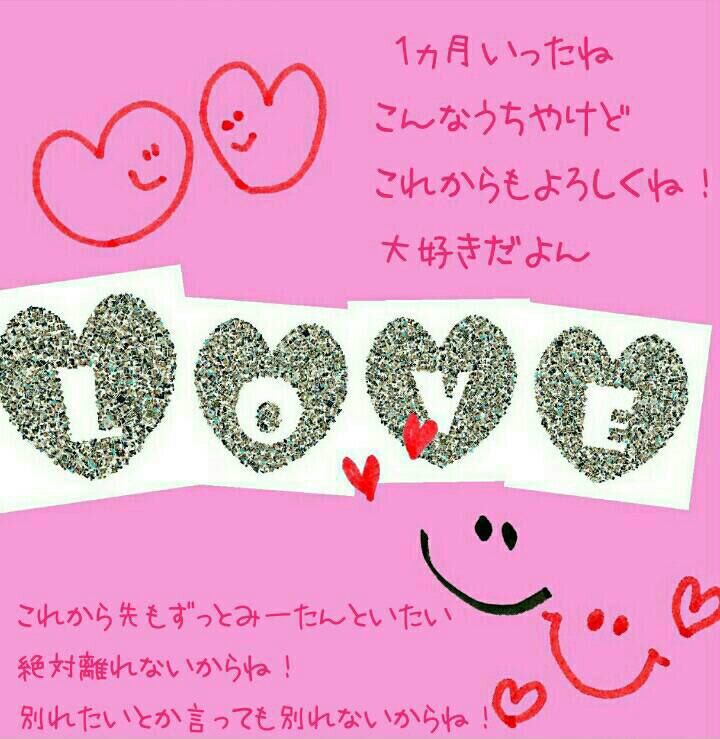 1ヵ月いったね
こんなうちやけど
これからもよろしくね！
大好きだよん
LOVE
これから先もずっとみーたんといたい
絶対離れないからね！
別れたいとか言っても別れないからね！